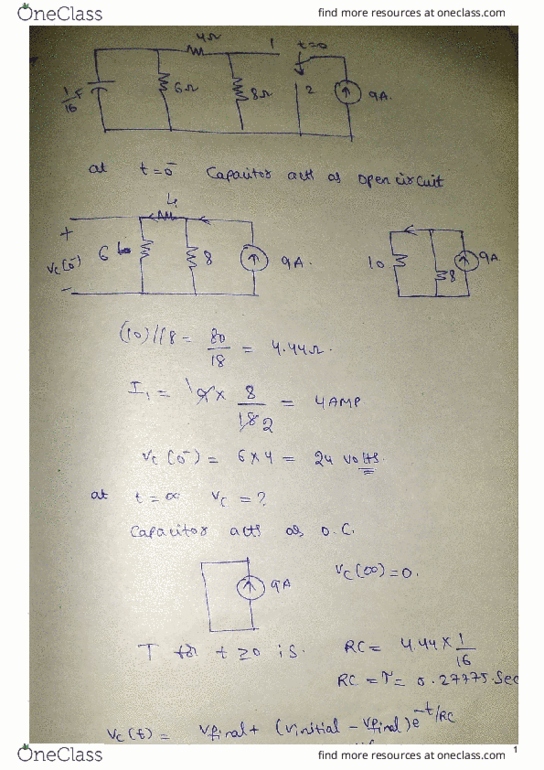 OneClass
find more resources at oneclass.com
4Ω 1 t=0
1/16 F 6Ω 8Ω 2 9A.
at t=0⁻ Capacitor acts as open circuit
4
+
Vc(0⁻) 6 8 9A.
−
10 8 9A
(10)//8 = 80/18 = 4.44Ω.
I₁ = 9 × 8/18 2 = 4 AMP
Vc(0⁻) = 6×4 = 24 volts.
at t=∞ Vc = ?
Capacitor acts as O.C.
9A Vc(∞)=0.
T for t≥0 is. RC = 4.44 × 1/16
RC = τ = 0.27775.Sec
Vc(t) = Vfinal + (Vinitial − Vfinal)e^-t/RC
1
OneClass
find more resources at oneclass.com